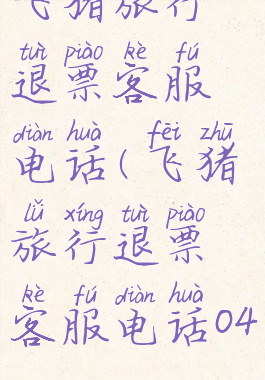 飞猪旅行
tuì piào kè fú
退票客服
diàn huà fēi zhū
电话(飞猪
lǚ xíng tuì piào
旅行退票
kè fú diàn huà
客服电话04